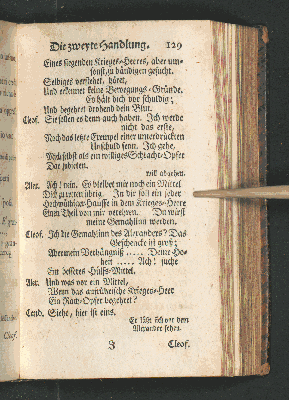 Die zweyte Handlung. 129
Eines siegenden Krieges-Heeres, aber um-
sonst, zu bändigen gesucht.
Selbiges verstehet, höret,
Und erkennet keine Bewegungs-Gründe.
Es hält dich vor schuldig;
Und begehret drohend dein Blut.
Cleof. Sie sollen es denn auch haben. Ich werde
nicht das erste,
Noch das letzte Exempel einer unterdrückten
Unschuld seyn. Ich gehe,
Mich selbst als ein williges Schlacht-Opfer
Darzubieten.
will abgehen.
Alex. Ach! nein. Es bleibet mir noch ein Mittel
Dich zu retten übrig. In dir soll ein jeder
Hochmüthiger Hauffe in dem Krieges-Heere
Einen Theil von mir verehren. Du wirst
meine Gemahlinn werden.
Cleof. Ich die Gemahlinn des Alexanders? Das
Geschencke ist groß;
Aber mein Verhängniß ..... Deine Ho-
heit ..... Ach! suche
Ein besseres Hülfs-Mittel.
Alex. Und was vor ein Mittel,
Wenn das aufrührische Krieges-Heer
Ein Rach-Opfer begehret?
Gand. Siehe, hier ist eins.
Er läßt sich vor dem
Alexander sehen.
J Cleof.